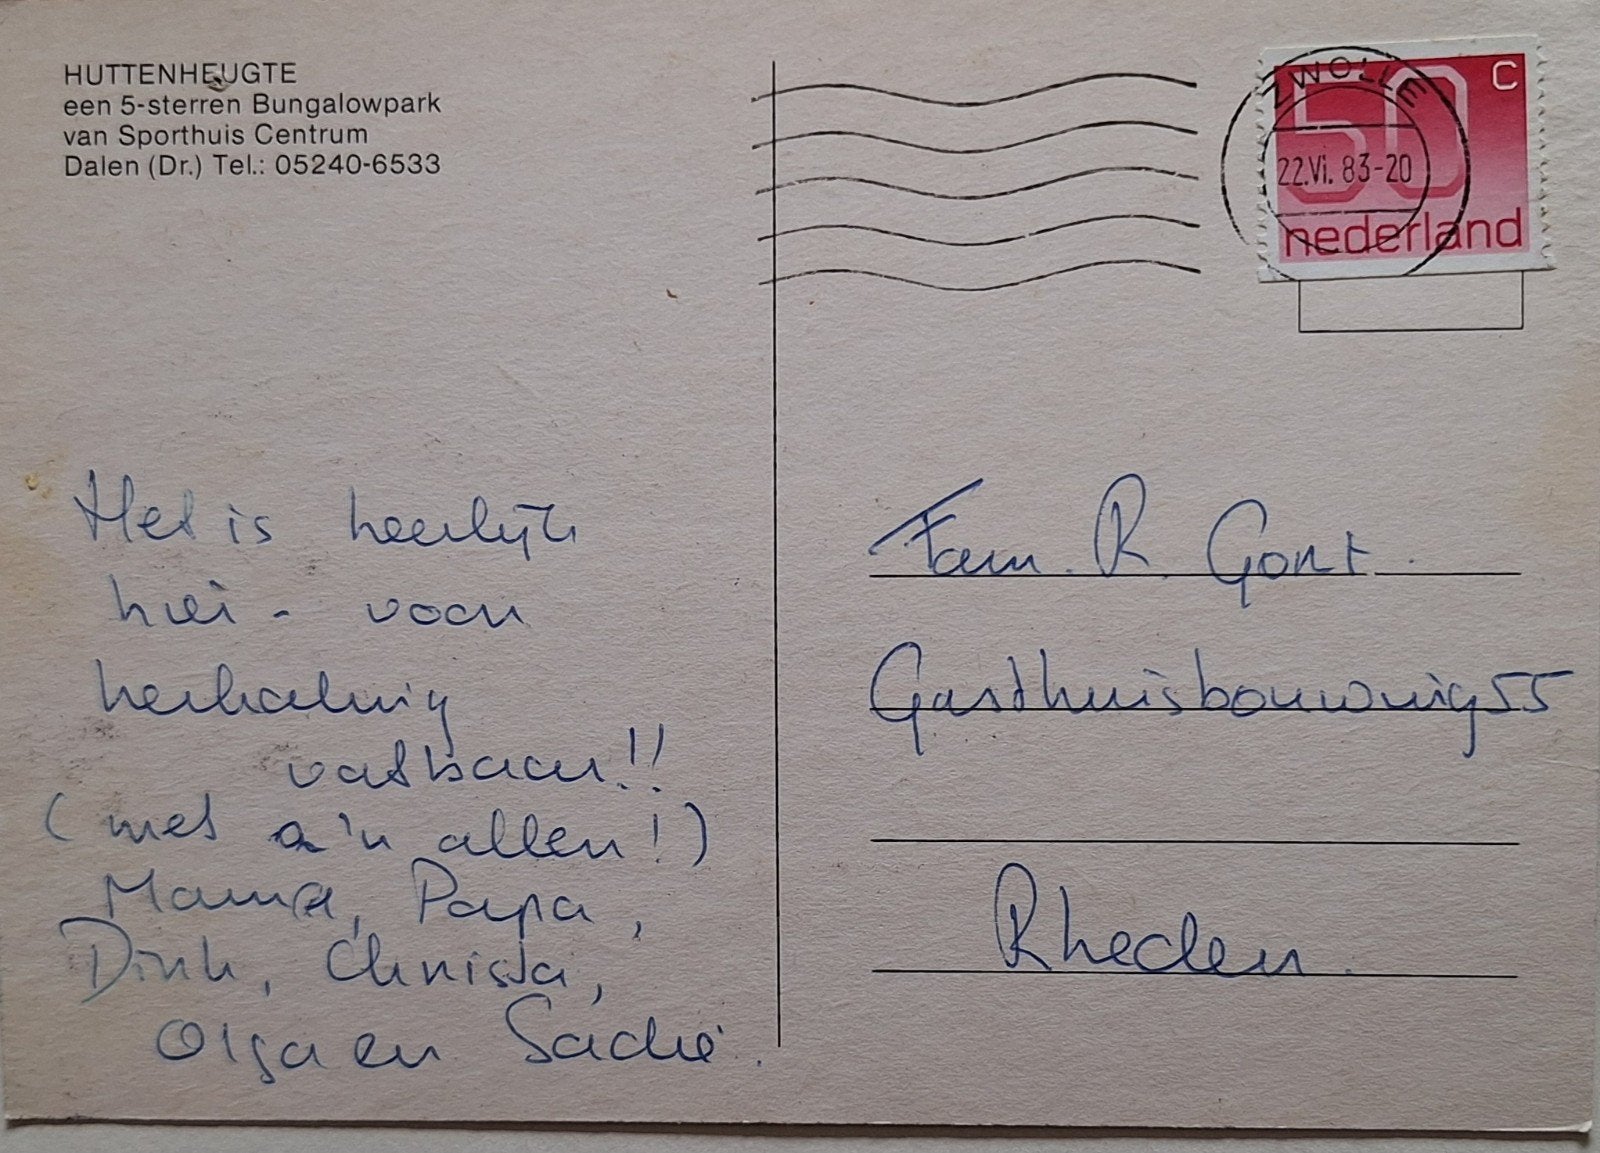 HUTTENHEUGTE
een 5-sterren Bungalowpark
van Sporthuis Centrum
Dalen (Dr.) Tel.: 05240-6533
ZWOLLE
22.VI.83-20
50 C
nederland
Het is heerlijk
hier - voor
herhaling
vatbaar!!
(met z'n allen!)
Mama, Papa,
Dirk, Christa,
Olga en
Fam. R. Gort.
Gasthuisbouwing 55
Rheden.